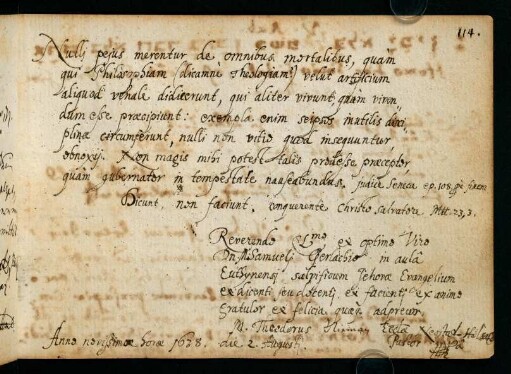 114.
Nullj pejus merentur de omnibus mortalibus, quam
qui Philosophiam (dicamus Theologiam) velut artificium
aliquod venale didicerunt, qui aliter vivunt, quam viven
dum esse præcipiunt: exempla enim seipsos inutilis disci,
plinæ circumferunt, nulli non vitio quod insequuntur
obnoxij. Non magis mihi potest talis prodesse præceptor
quam gubernator in tempestate nauseabundus. judice Seneca ep. 108.
Dicunt, non faciunt, conquerente Christo Salvatore Mtt. 23, 3.
Reverendo ex optimo Viro
Dn. M. Samueli Gerlachio in aula
Euthynensi
Evangelium
ex dicenti seu docenti, et facienti ex animo
gratulor ex felicia quæq. adprecor
M. Theodorus
Pastor
Anno novissimæ horæ 1638. die 2. Augusti